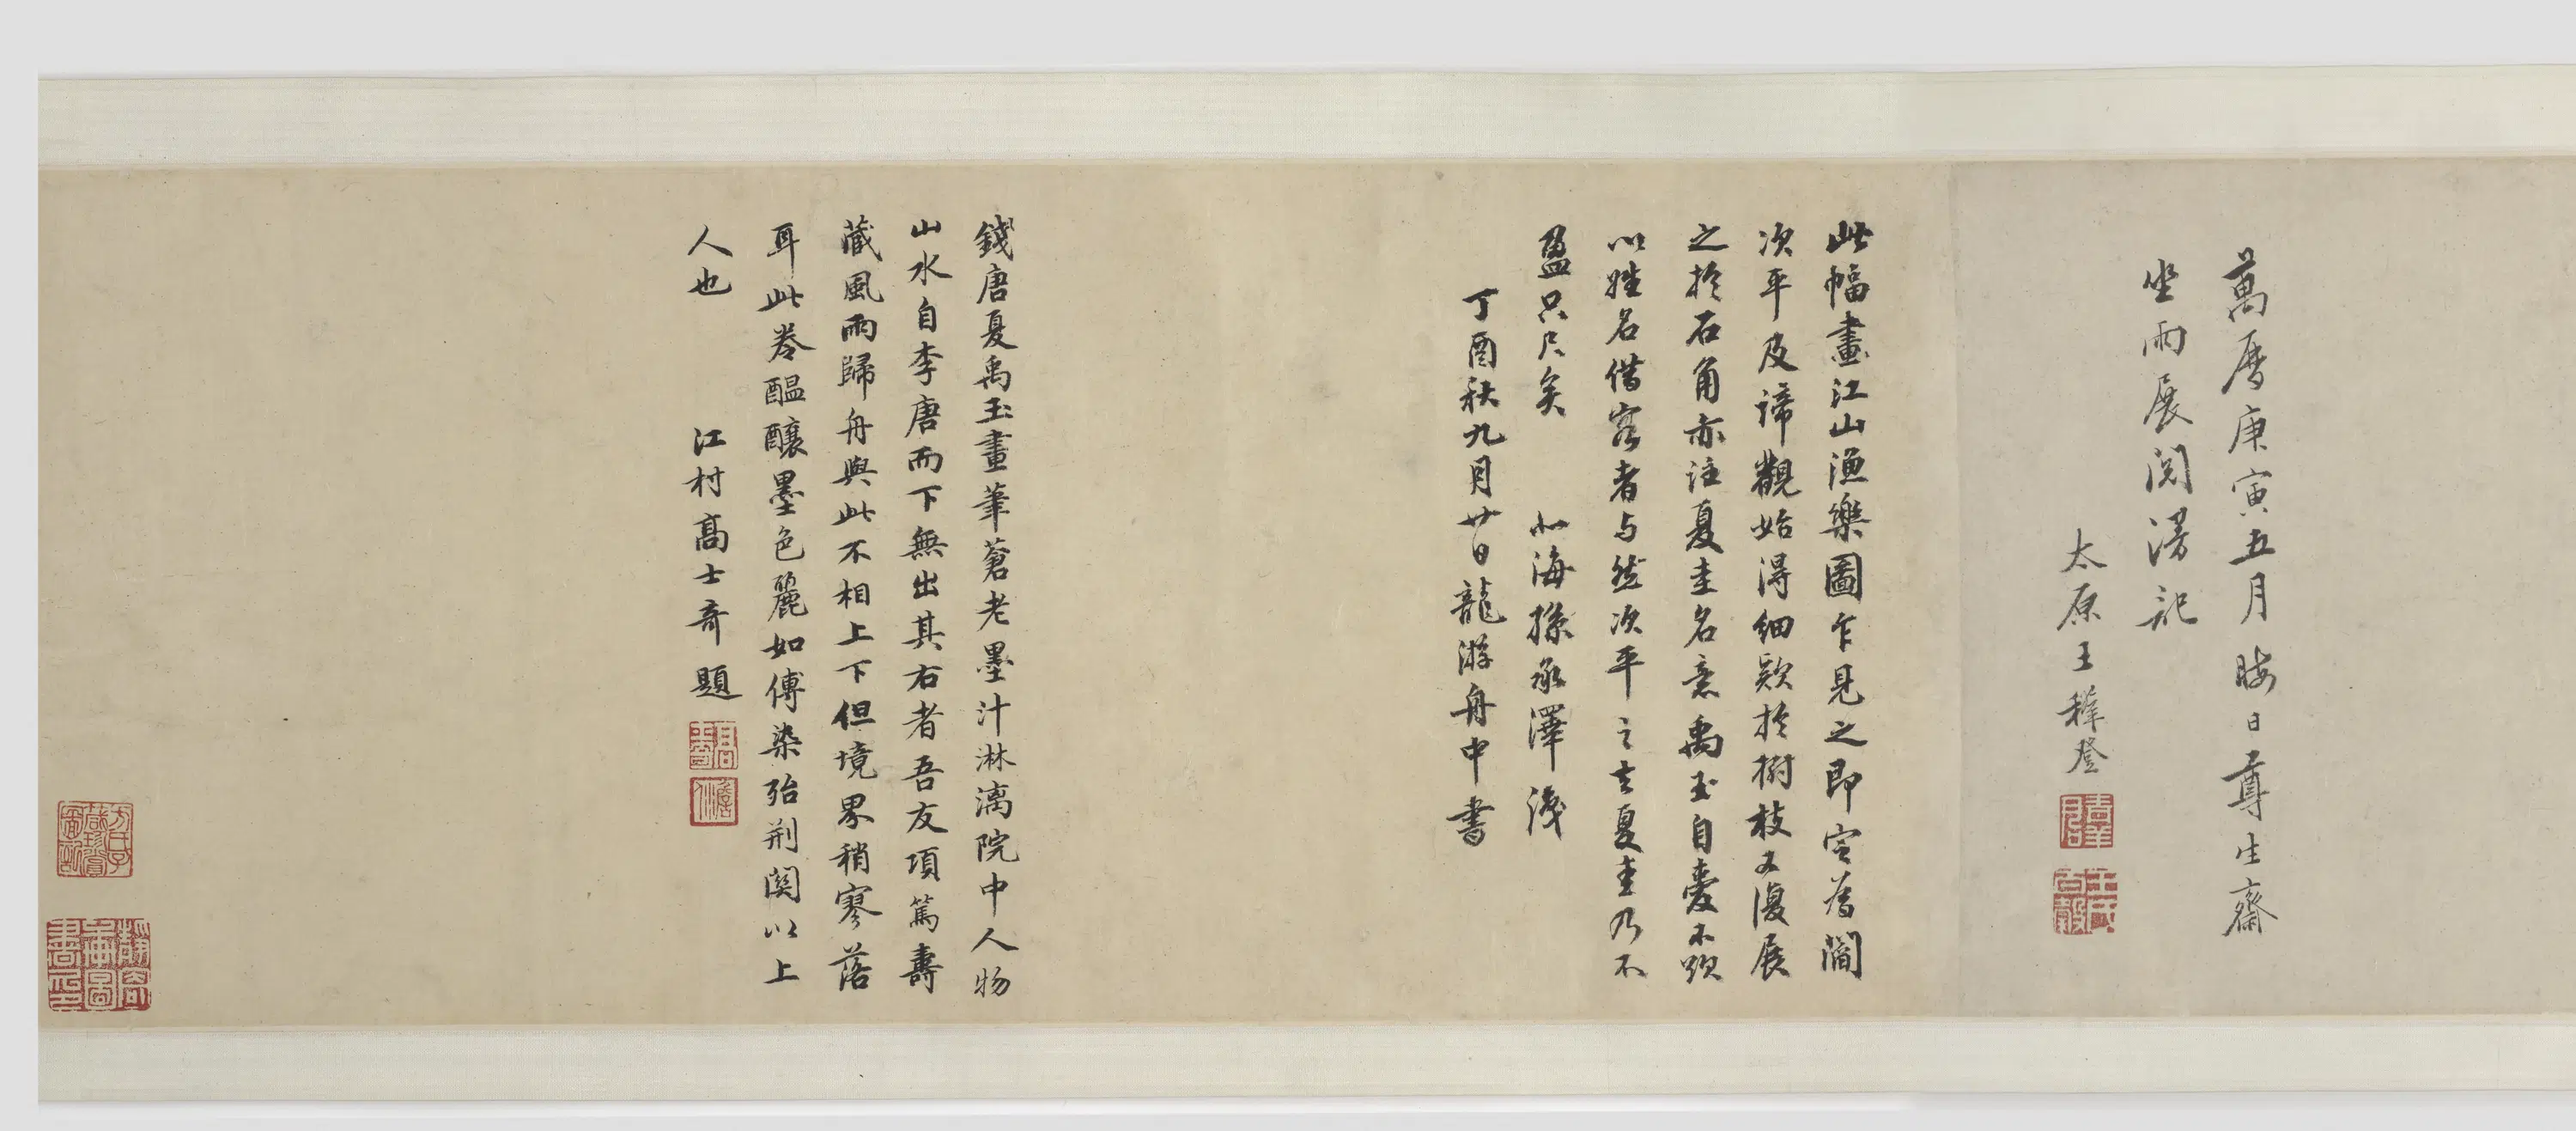 萬曆庚寅五月晦日尊生齋
坐雨展閱漫記
太原王穉登
此幅畫江山漁樂圖乍見之即定為閻
次平及諦觀始得細款於樹枝又復展
之於石角亦注夏圭名意禹玉自愛不
以姓名借客者与然次平之去夏圭乃不
盈只尺矣 北海孫承澤識
丁酉秋九月廿日龍游舟中書
錢唐夏禹玉畫筆蒼老墨汁淋漓院中人物
山水自李唐而下無出其右者吾友項篤壽
藏風雨歸舟與此不相上下但境界稍寥落
耳此卷醞釀墨色麗如傅染殆荊關以上
人也 江村高士奇題
高士奇